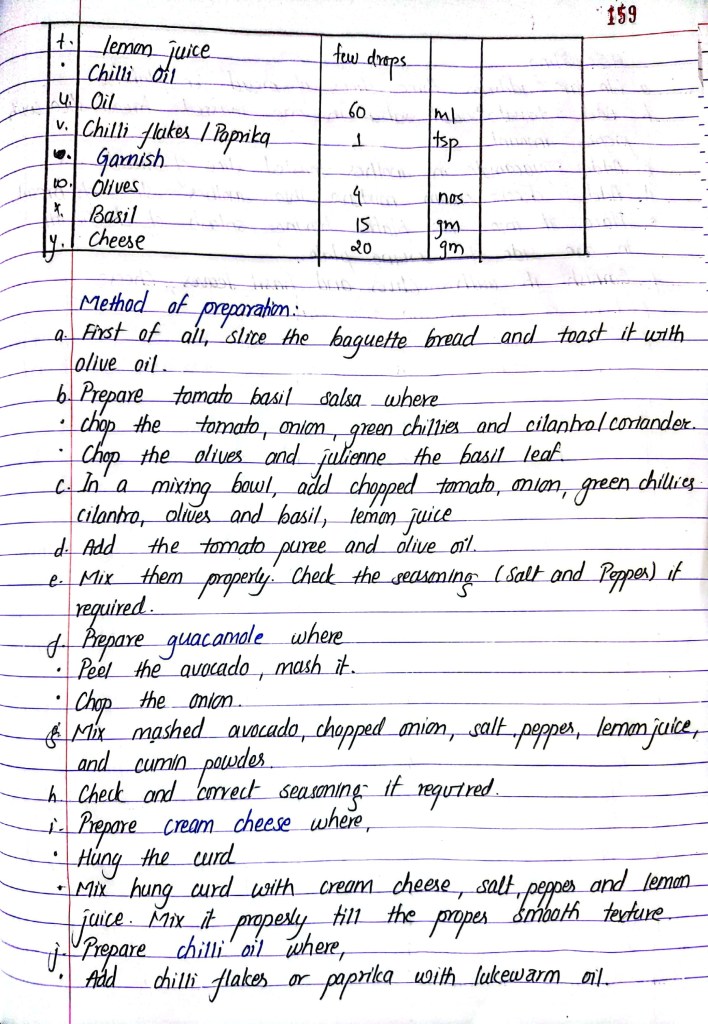 159
t. lemon juice few drops
• Chilli Oil
u. Oil 60 ml
v. Chilli flakes / Paprika 1 tsp
• Garnish
w. Olives 4 nos
x. Basil 15 gm
y. Cheese 20 gm
Method of preparation:
a. First of all, slice the baguette bread and toast it with
olive oil.
b. Prepare tomato basil salsa where
• chop the tomato, onion, green chillies and cilantro/coriander.
• Chop the olives and julienne the basil leaf.
c. In a mixing bowl, add chopped tomato, onion, green chillies
cilantro, olives and basil, lemon juice
d. Add the tomato puree and olive oil.
e. Mix them properly. Check the seasoning (Salt and Pepper) if
required.
f. Prepare guacamole where
• Peel the avocado, mash it.
• Chop the onion.
g. Mix mashed avocado, chopped onion, salt, pepper, lemon juice,
and cumin powder.
h. Check and correct seasoning if required.
i. Prepare cream cheese where,
• Hung the curd
• Mix hung curd with cream cheese, salt, pepper and lemon
juice. Mix it properly till the proper smooth texture.
j. Prepare chilli oil where,
• Add chilli flakes or paprika with lukewarm oil.